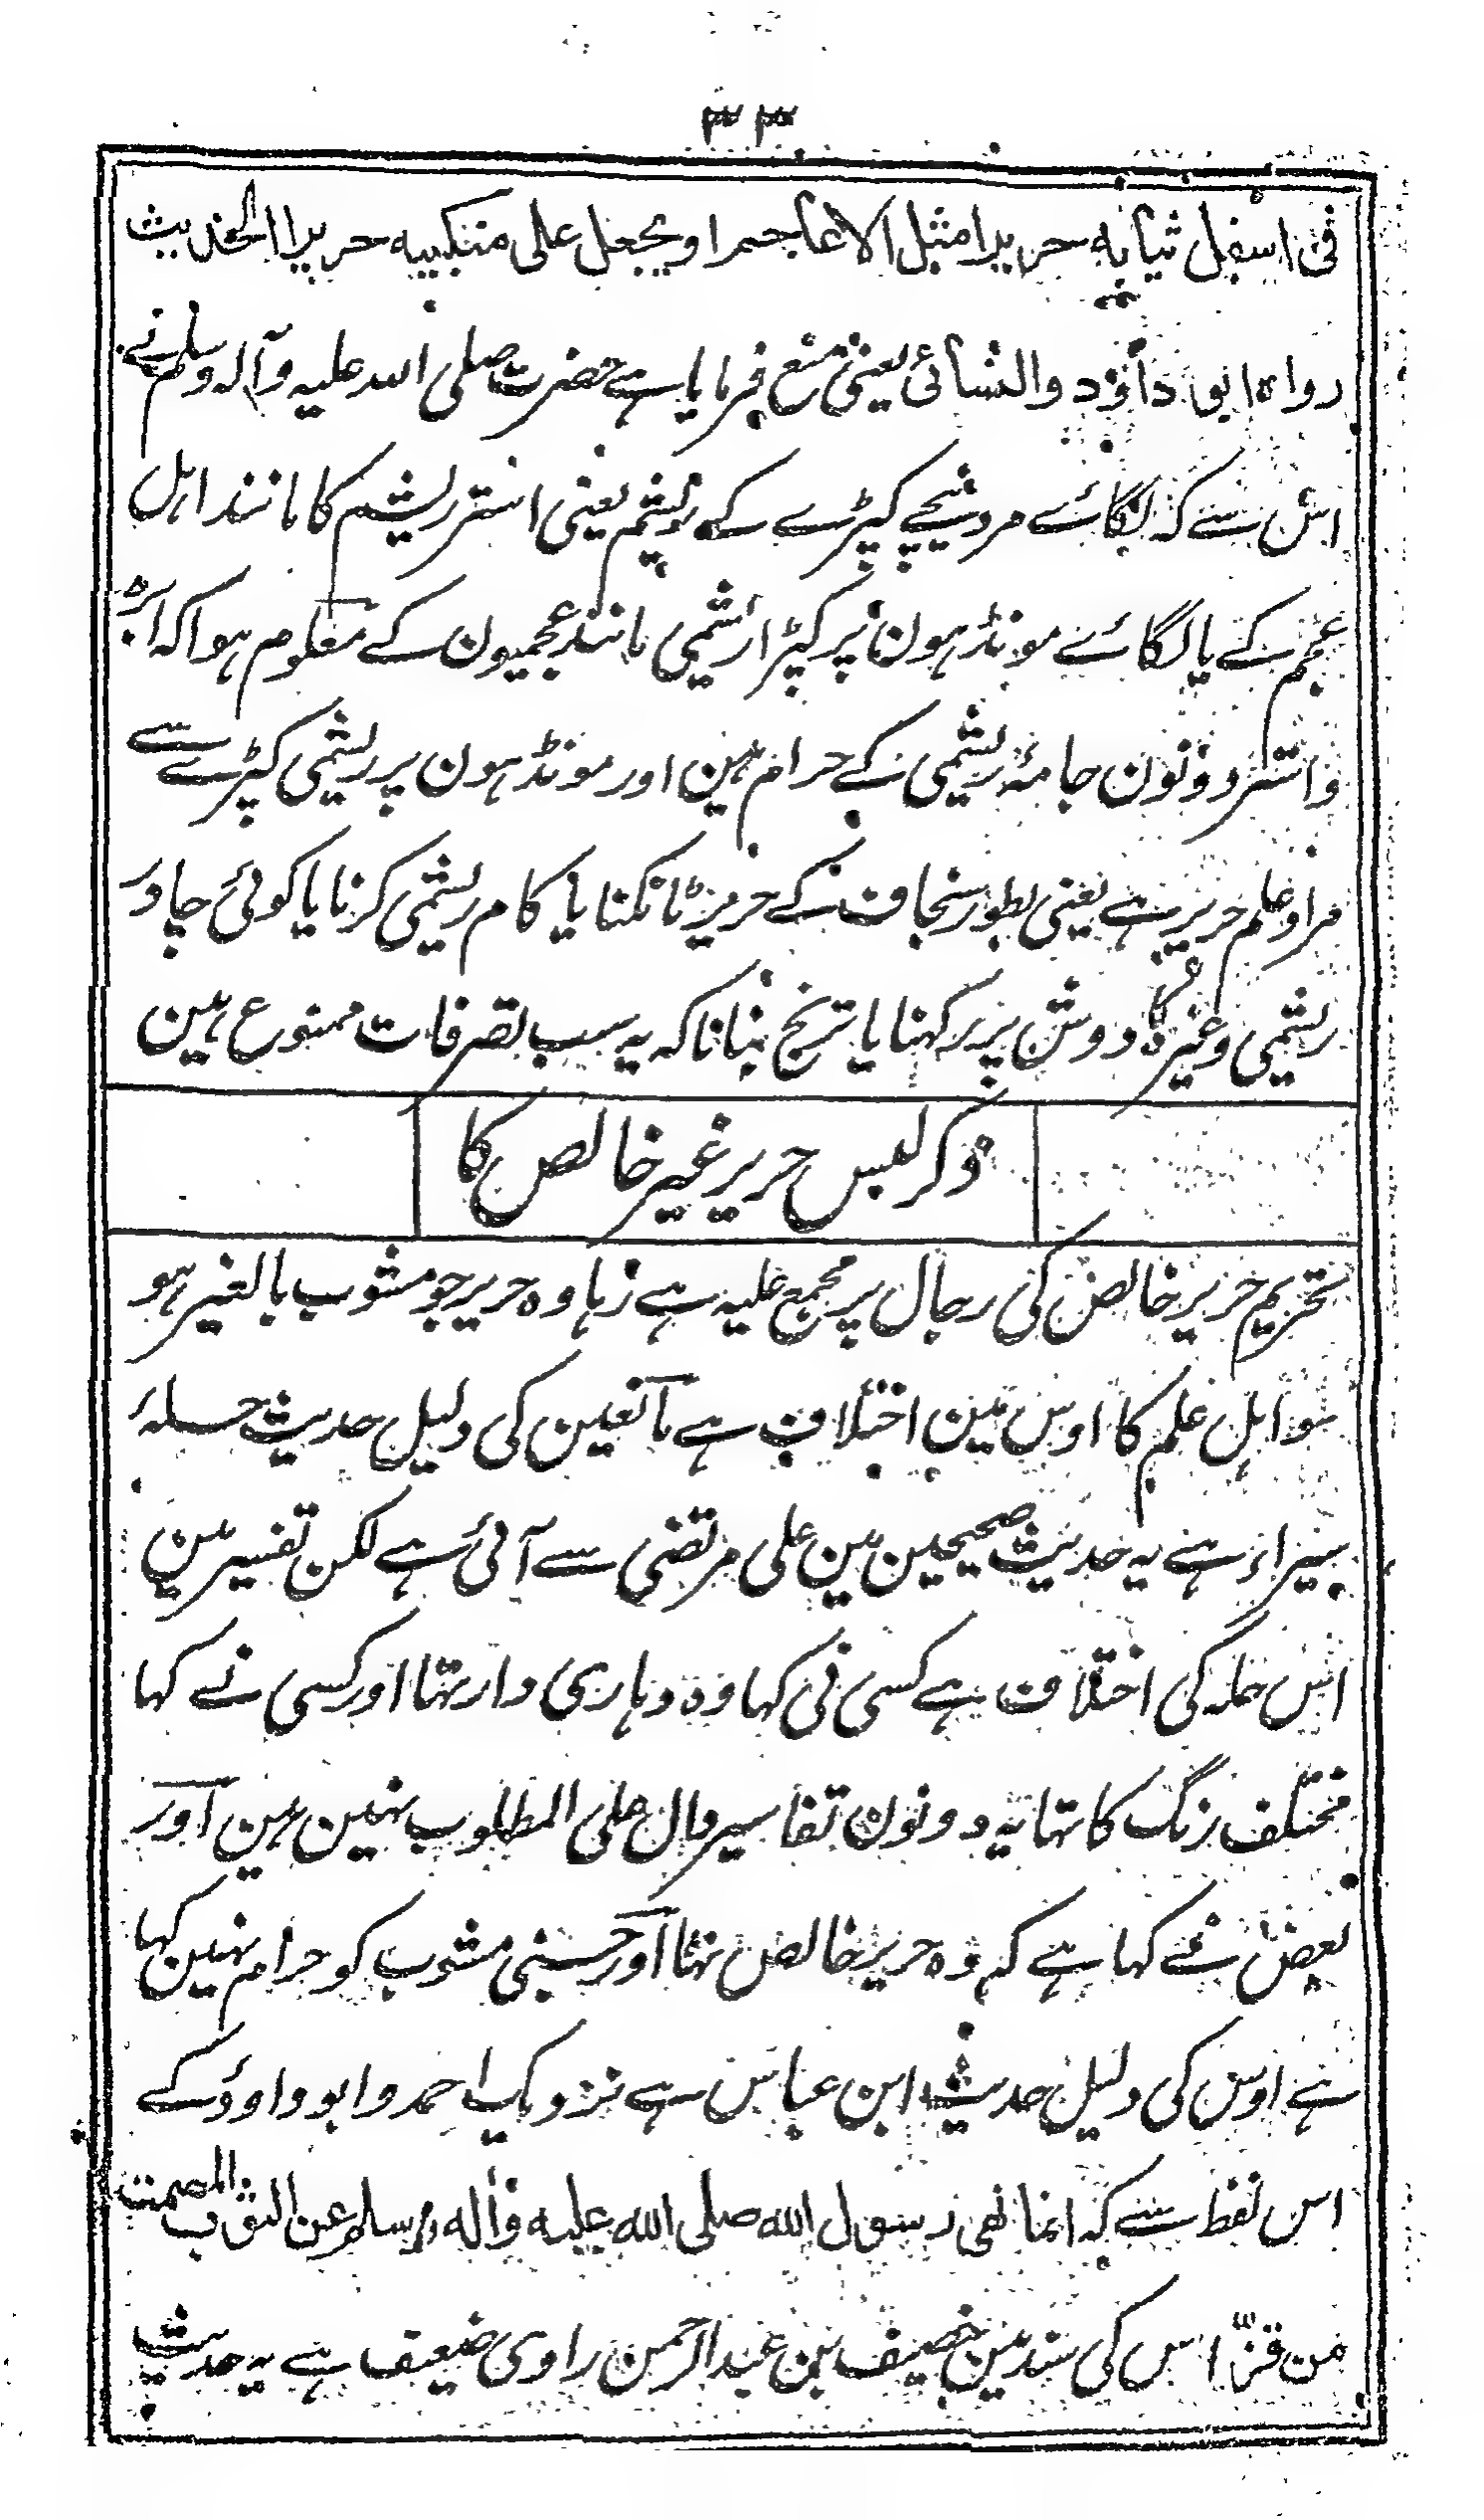 ۳۳
فی اسفل ثیابه حریرا مثل الاعاجم او یجعل علی منکبیه حریرا الحدیث
رواه ابو داؤد والنسائی یعنی منع فرمایا ہے حضرت صلی اللہ علیہ وآلہ وسلم نے
اس سے کہ لگائے مرد نیچے کپڑے کے ریشم یعنی استر ریشم کا مانند اہل
عجم کے یا لگائے مونڈہون پر کپڑا ریشمی مانند عجمیون کے معلوم ہوا کہ ابرہ
و استر دونون جامۂ ریشمی کے حرام ہین اور مونڈہون پر ریشمی کپڑے سے
مراد علم حریر ہے یعنی بطور سنجاف کے حریر ٹانکنا یا کام ریشمی کرنا یا کوئی چادر
ریشمی وغیرہ کا دوش پر رکہنا یا ترنج بنانا کہ یہ سب تصرفات ممنوع ہین
ذکر لبس حریر غیر خالص کا
تحریم حریر خالص کی رجال پر مجمع علیہ ہے رہا وہ حریر جو مشوب بالغیر ہو
سو اہل علم کا اوس مین اختلاف ہے مانعین کی دلیل حدیث حلۂ
سیراء ہے یہ حدیث صحیحین مین علی مرتضی سے آئی ہے لکن تفسیر مین
اس حلہ کی اختلاف ہے کسی نی کہا وہ دہاری دار تہا اور کسی نے کہا
مختلف رنگ کا تہا یہ دونون تفاسیر دال علی المطلوب نہین ہین اور
بعض نے کہا ہے کہ وہ حریر خالص نتہا اور جسنی مشوب کو حرام نہین کہا
ہے اوس کی دلیل حدیث ابن عباس ہے نزدیک احمد و ابو داوؤد کے
اس لفظ سے کہ انما نهی رسول الله صلی الله علیه وأله وسلم عن الثوب المصمت
من قزّ اس کی سند مین خصیف بن عبدالرحمن راوی ضعیف ہے یہ حدیث